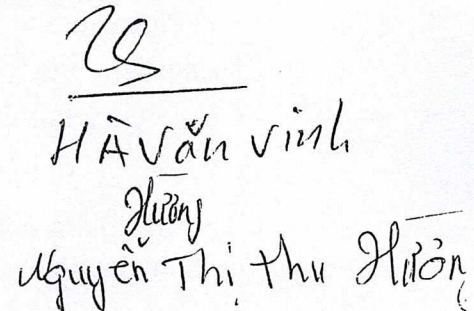 HÀ Văn Vinh
Hường
Nguyễn Thị Thu Hườn